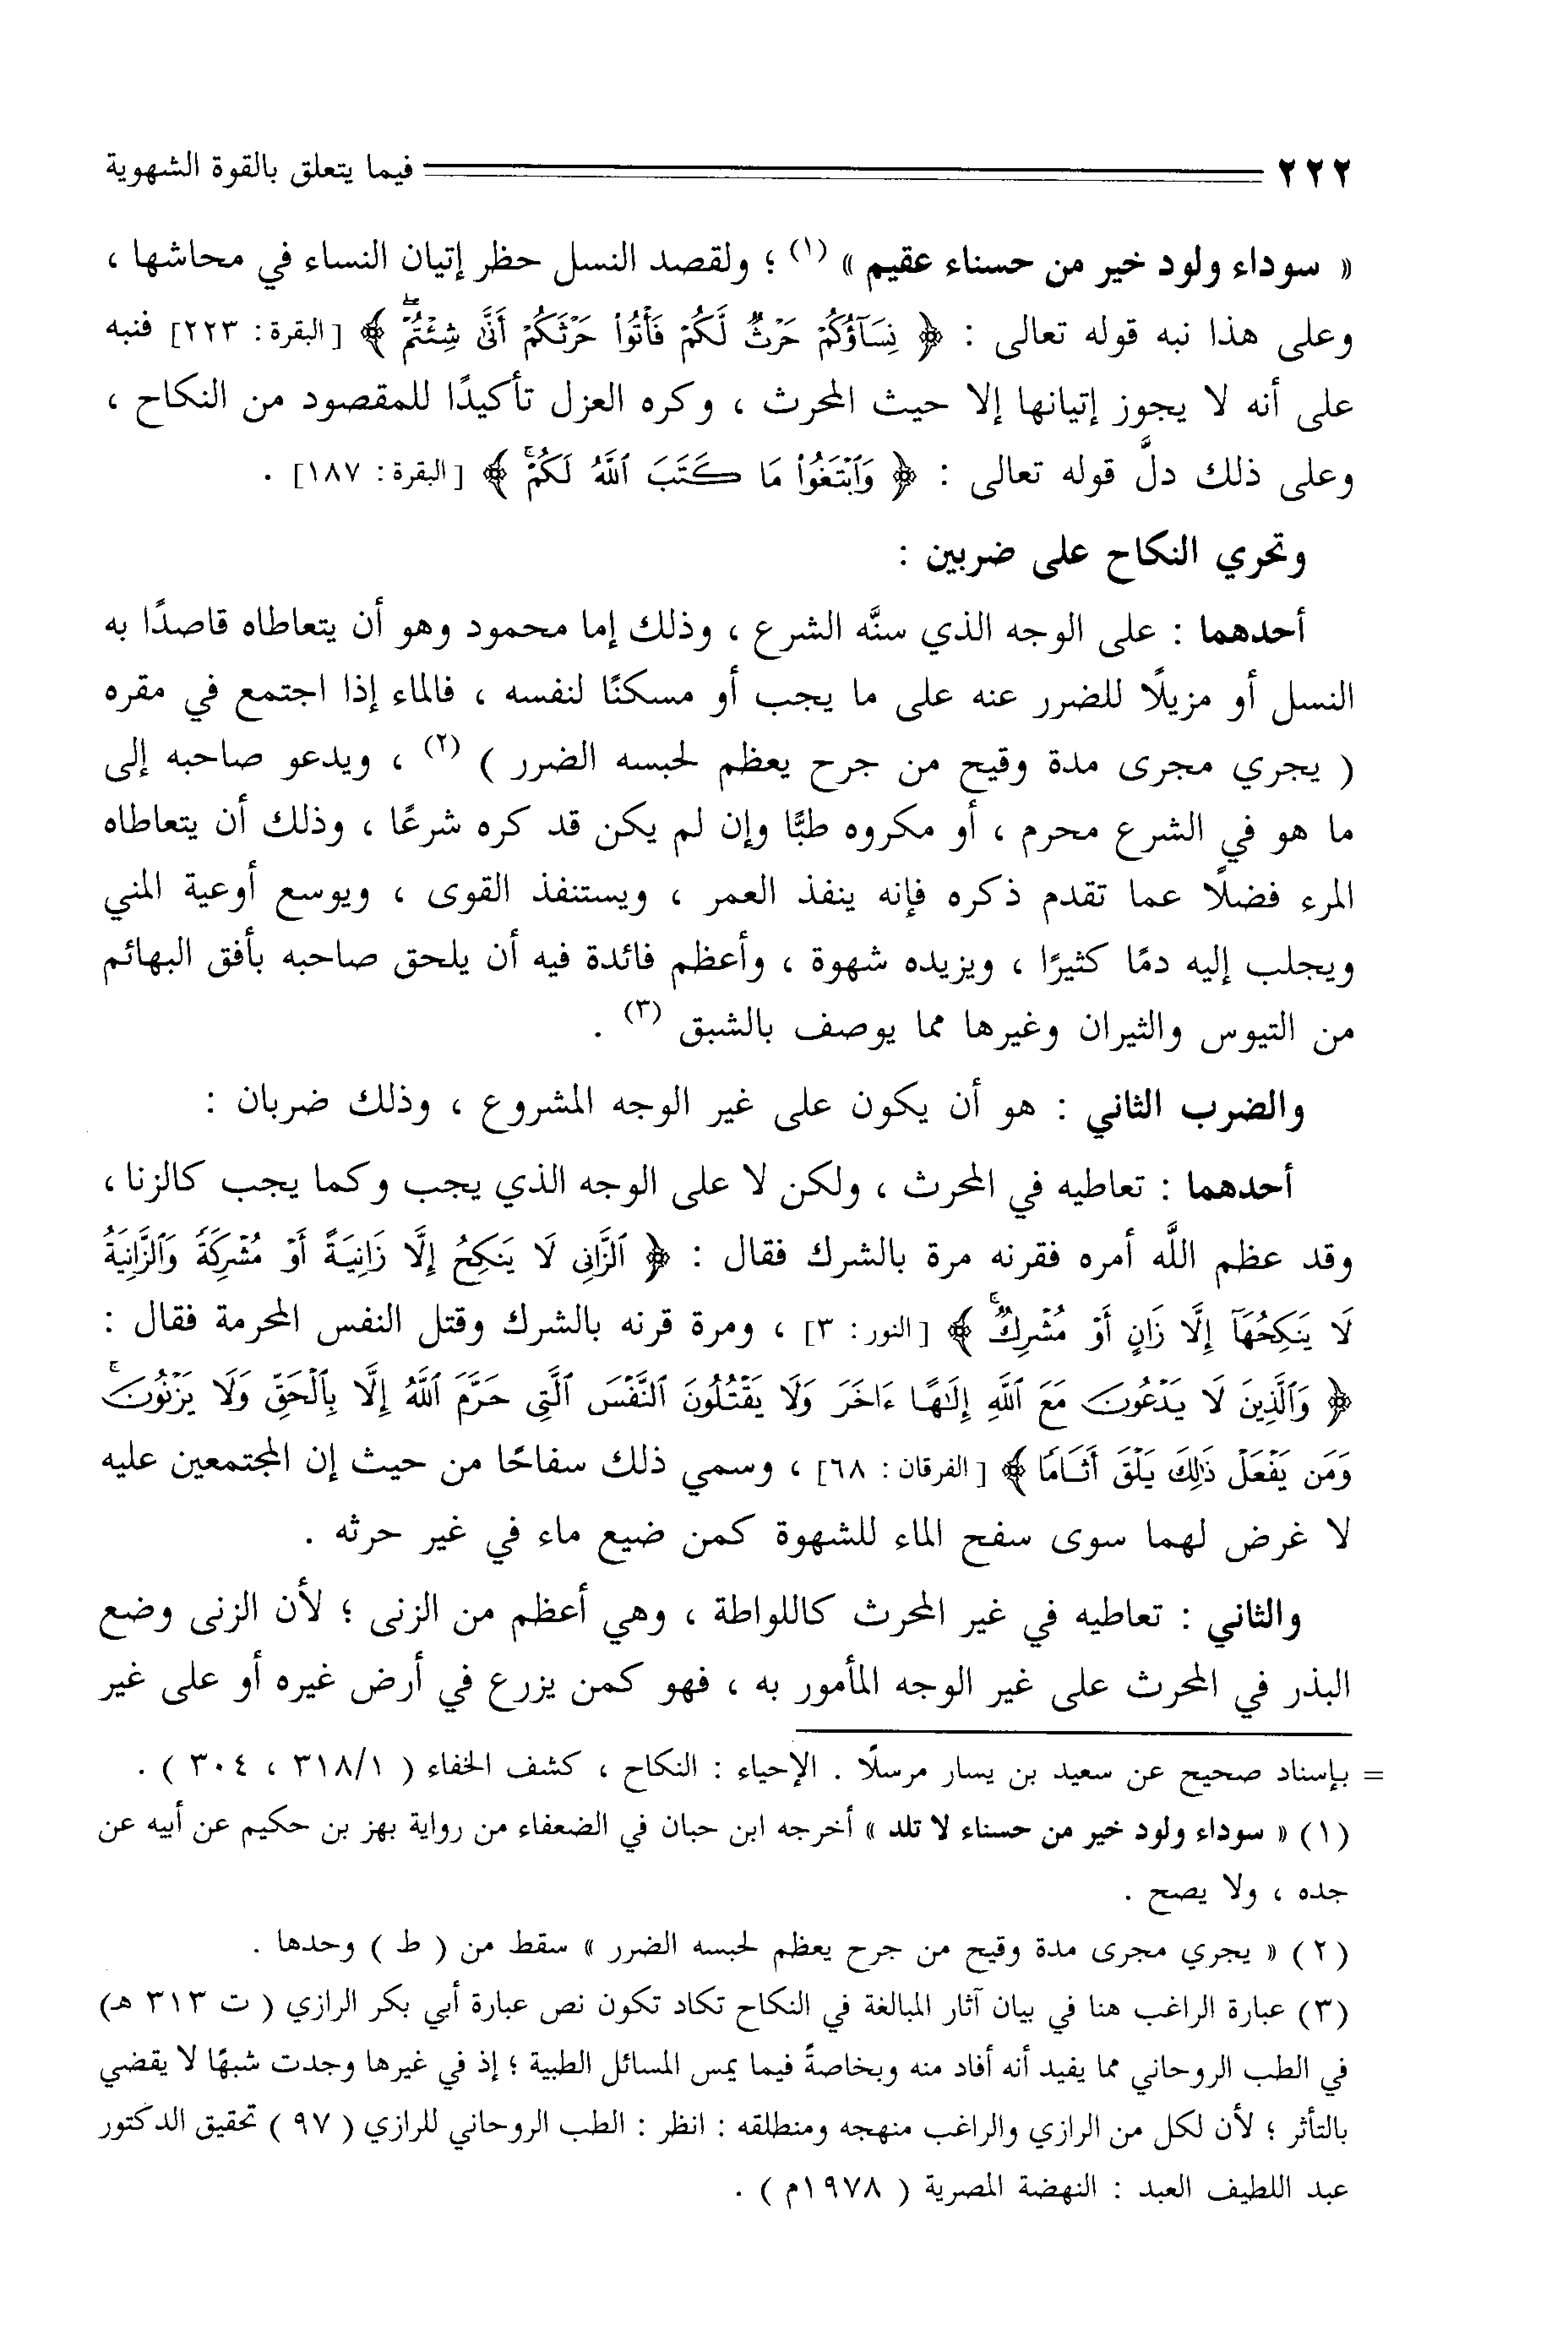 ٢٢٢ فيما يتعلق بالقوة الشهوية
« سوداء ولود خير من حسناء عقيم » (١) ؛ ولقصد النسل حظر إتيان النساء في محاشها ،
وعلى هذا نبه قوله تعالى : ﴿ نِسَآؤُكُمْ حَرْثٌ لَّكُمْ فَأْتُوا۟ حَرْثَكُمْ أَنَّىٰ شِئْتُمْ ۖ ﴾ [البقرة: ٢٢٣] فنبه
على أنه لا يجوز إتيانها إلا حيث المحرث ، وكره العزل تأكيدًا للمقصود من النكاح ،
وعلى ذلك دلَّ قوله تعالى : ﴿ وَٱبْتَغُوا۟ مَا كَتَبَ ٱللَّهُ لَكُمْ ۚ ﴾ [البقرة: ١٨٧] .
وتحري النكاح على ضربين :
أحدهما : على الوجه الذي سنَّه الشرع ، وذلك إما محمود وهو أن يتعاطاه قاصدًا به
النسل أو مزيلًا للضرر عنه على ما يجب أو مسكنًا لنفسه ، فالماء إذا اجتمع في مقره
( يجري مجرى مدة وقيح من جرح يعظم لحبسه الضرر ) (٢) ، ويدعو صاحبه إلى
ما هو في الشرع محرم ، أو مكروه طبًّا وإن لم يكن قد كره شرعًا ، وذلك أن يتعاطاه
المرء فضلًا عما تقدم ذكره فإنه ينفذ العمر ، ويستنفذ القوى ، ويوسع أوعية المني
ويجلب إليه دمًا كثيرًا ، ويزيده شهوة ، وأعظم فائدة فيه أن يلحق صاحبه بأفق البهائم
من التيوس والثيران وغيرها مما يوصف بالشبق (٣) .
والضرب الثاني : هو أن يكون على غير الوجه المشروع ، وذلك ضربان :
أحدهما : تعاطيه في المحرث ، ولكن لا على الوجه الذي يجب وكما يجب كالزنا ،
وقد عظم اللَّه أمره فقرنه مرة بالشرك فقال : ﴿ ٱلزَّانِى لَا يَنكِحُ إِلَّا زَانِيَةً أَوْ مُشْرِكَةً وَٱلزَّانِيَةُ
لَا يَنكِحُهَآ إِلَّا زَانٍ أَوْ مُشْرِكٌ ۚ ﴾ [النور: ٣] ، ومرة قرنه بالشرك وقتل النفس المحرمة فقال :
﴿ وَٱلَّذِينَ لَا يَدْعُونَ مَعَ ٱللَّهِ إِلَٰهًا ءَاخَرَ وَلَا يَقْتُلُونَ ٱلنَّفْسَ ٱلَّتِى حَرَّمَ ٱللَّهُ إِلَّا بِٱلْحَقِّ وَلَا يَزْنُونَ ۚ
وَمَن يَفْعَلْ ذَٰلِكَ يَلْقَ أَثَامًا ﴾ [الفرقان: ٦٨] ، وسمي ذلك سفاحًا من حيث إن المجتمعين عليه
لا غرض لهما سوى سفح الماء للشهوة كمن ضيع ماء في غير حرثه .
والثاني : تعاطيه في غير المحرث كاللواطة ، وهي أعظم من الزنى ؛ لأن الزنى وضع
البذر في المحرث على غير الوجه المأمور به ، فهو كمن يزرع في أرض غيره أو على غير
= بإسناد صحيح عن سعيد بن يسار مرسلًا . الإحياء : النكاح ، كشف الخفاء ( ٣١٨/١ ، ٣٠٤ ) .
(١) « سوداء ولود خير من حسناء لا تلد » أخرجه ابن حبان في الضعفاء من رواية بهز بن حكيم عن أبيه عن
جده ، ولا يصح .
(٢) « يجري مجرى مدة وقيح من جرح يعظم لحبسه الضرر » سقط من ( ط ) وحدها .
(٣) عبارة الراغب هنا في بيان آثار المبالغة في النكاح تكاد تكون نص عبارة أبي بكر الرازي ( ت ٣١٣ هـ)
في الطب الروحاني مما يفيد أنه أفاد منه وبخاصةً فيما يمس المسائل الطبية ؛ إذ في غيرها وجدت شبهًا لا يقضي
بالتأثر ؛ لأن لكل من الرازي والراغب منهجه ومنطلقه : انظر : الطب الروحاني للرازي ( ٩٧ ) تحقيق الدكتور
عبد اللطيف العبد : النهضة المصرية ( ١٩٧٨م ) .